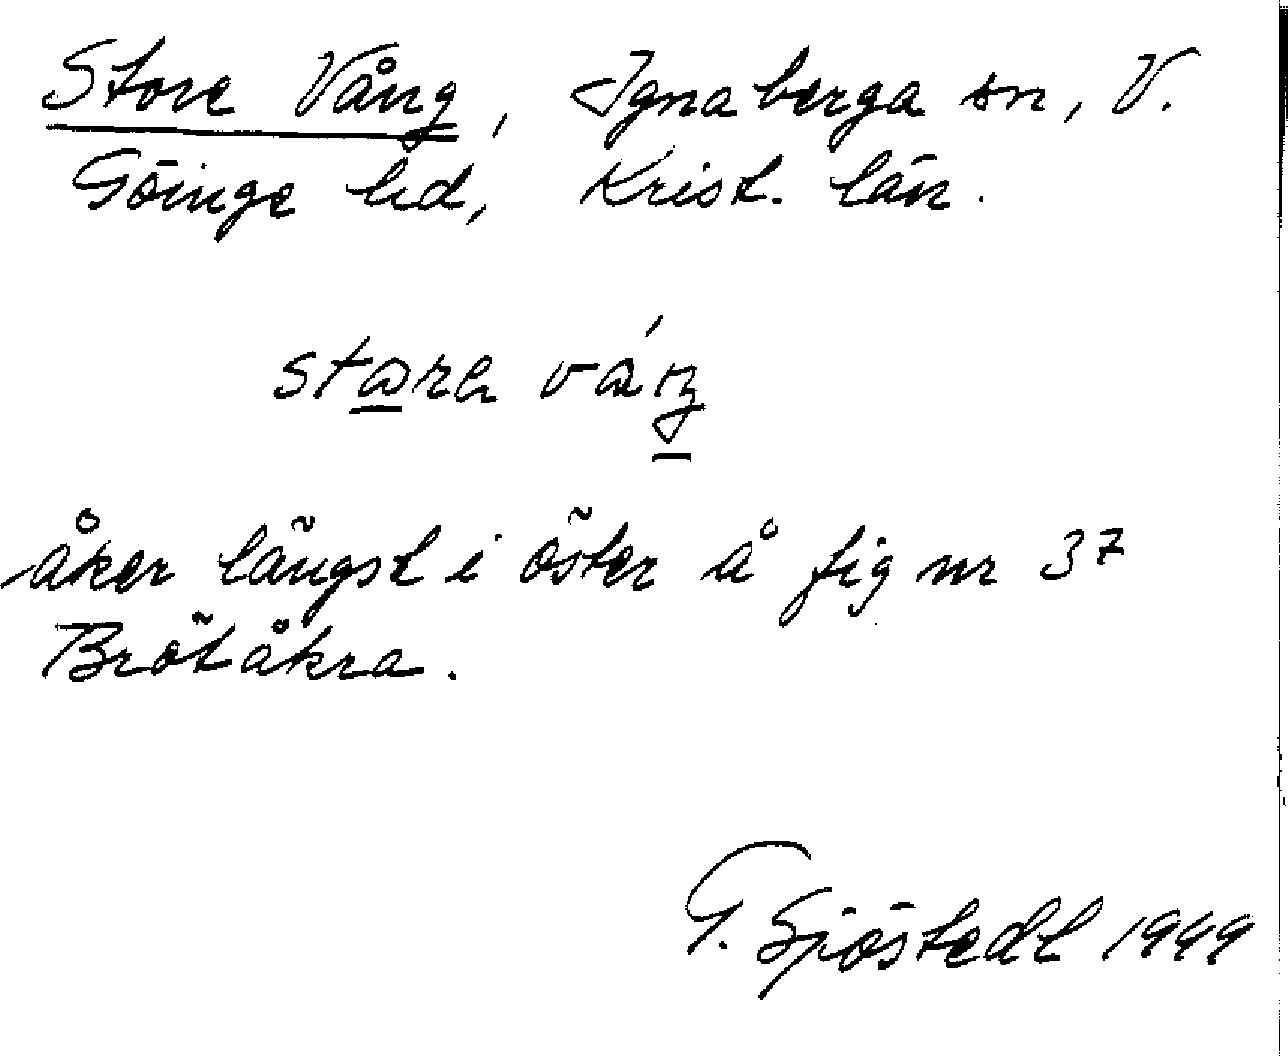 Store Vång, Ignaberga sn, V.
Göinge hd, Krist. län.
åker längst i öster å fig nr 37
Brötåkra.
G. Sjöstedt 1949